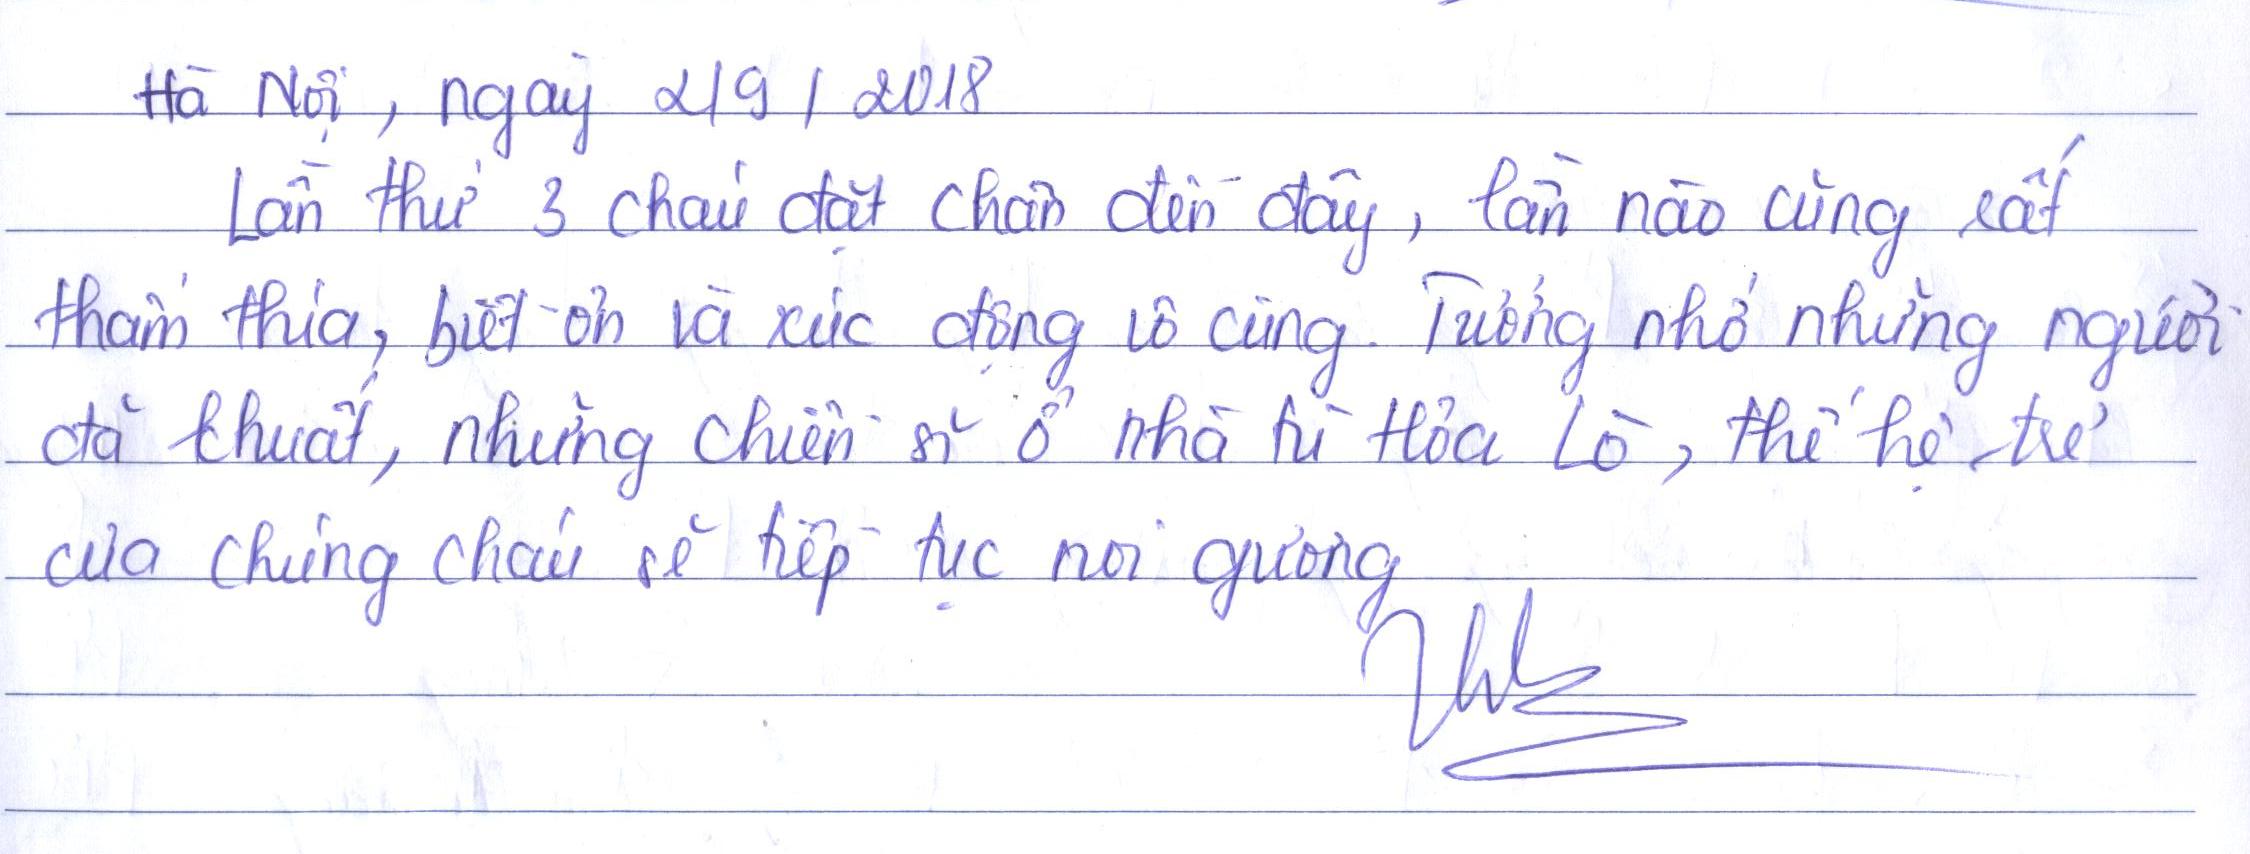 Hà Nội, ngày 2/9/2018
Lần thứ 3 cháu đặt chân đến đây, lần nào cũng rất
thấm thía, biết ơn và xúc động vô cùng. Tưởng nhớ những người
đã khuất, những chiến sĩ ở nhà tù Hỏa Lò, thế hệ trẻ
của chúng cháu sẽ tiếp tục noi gương